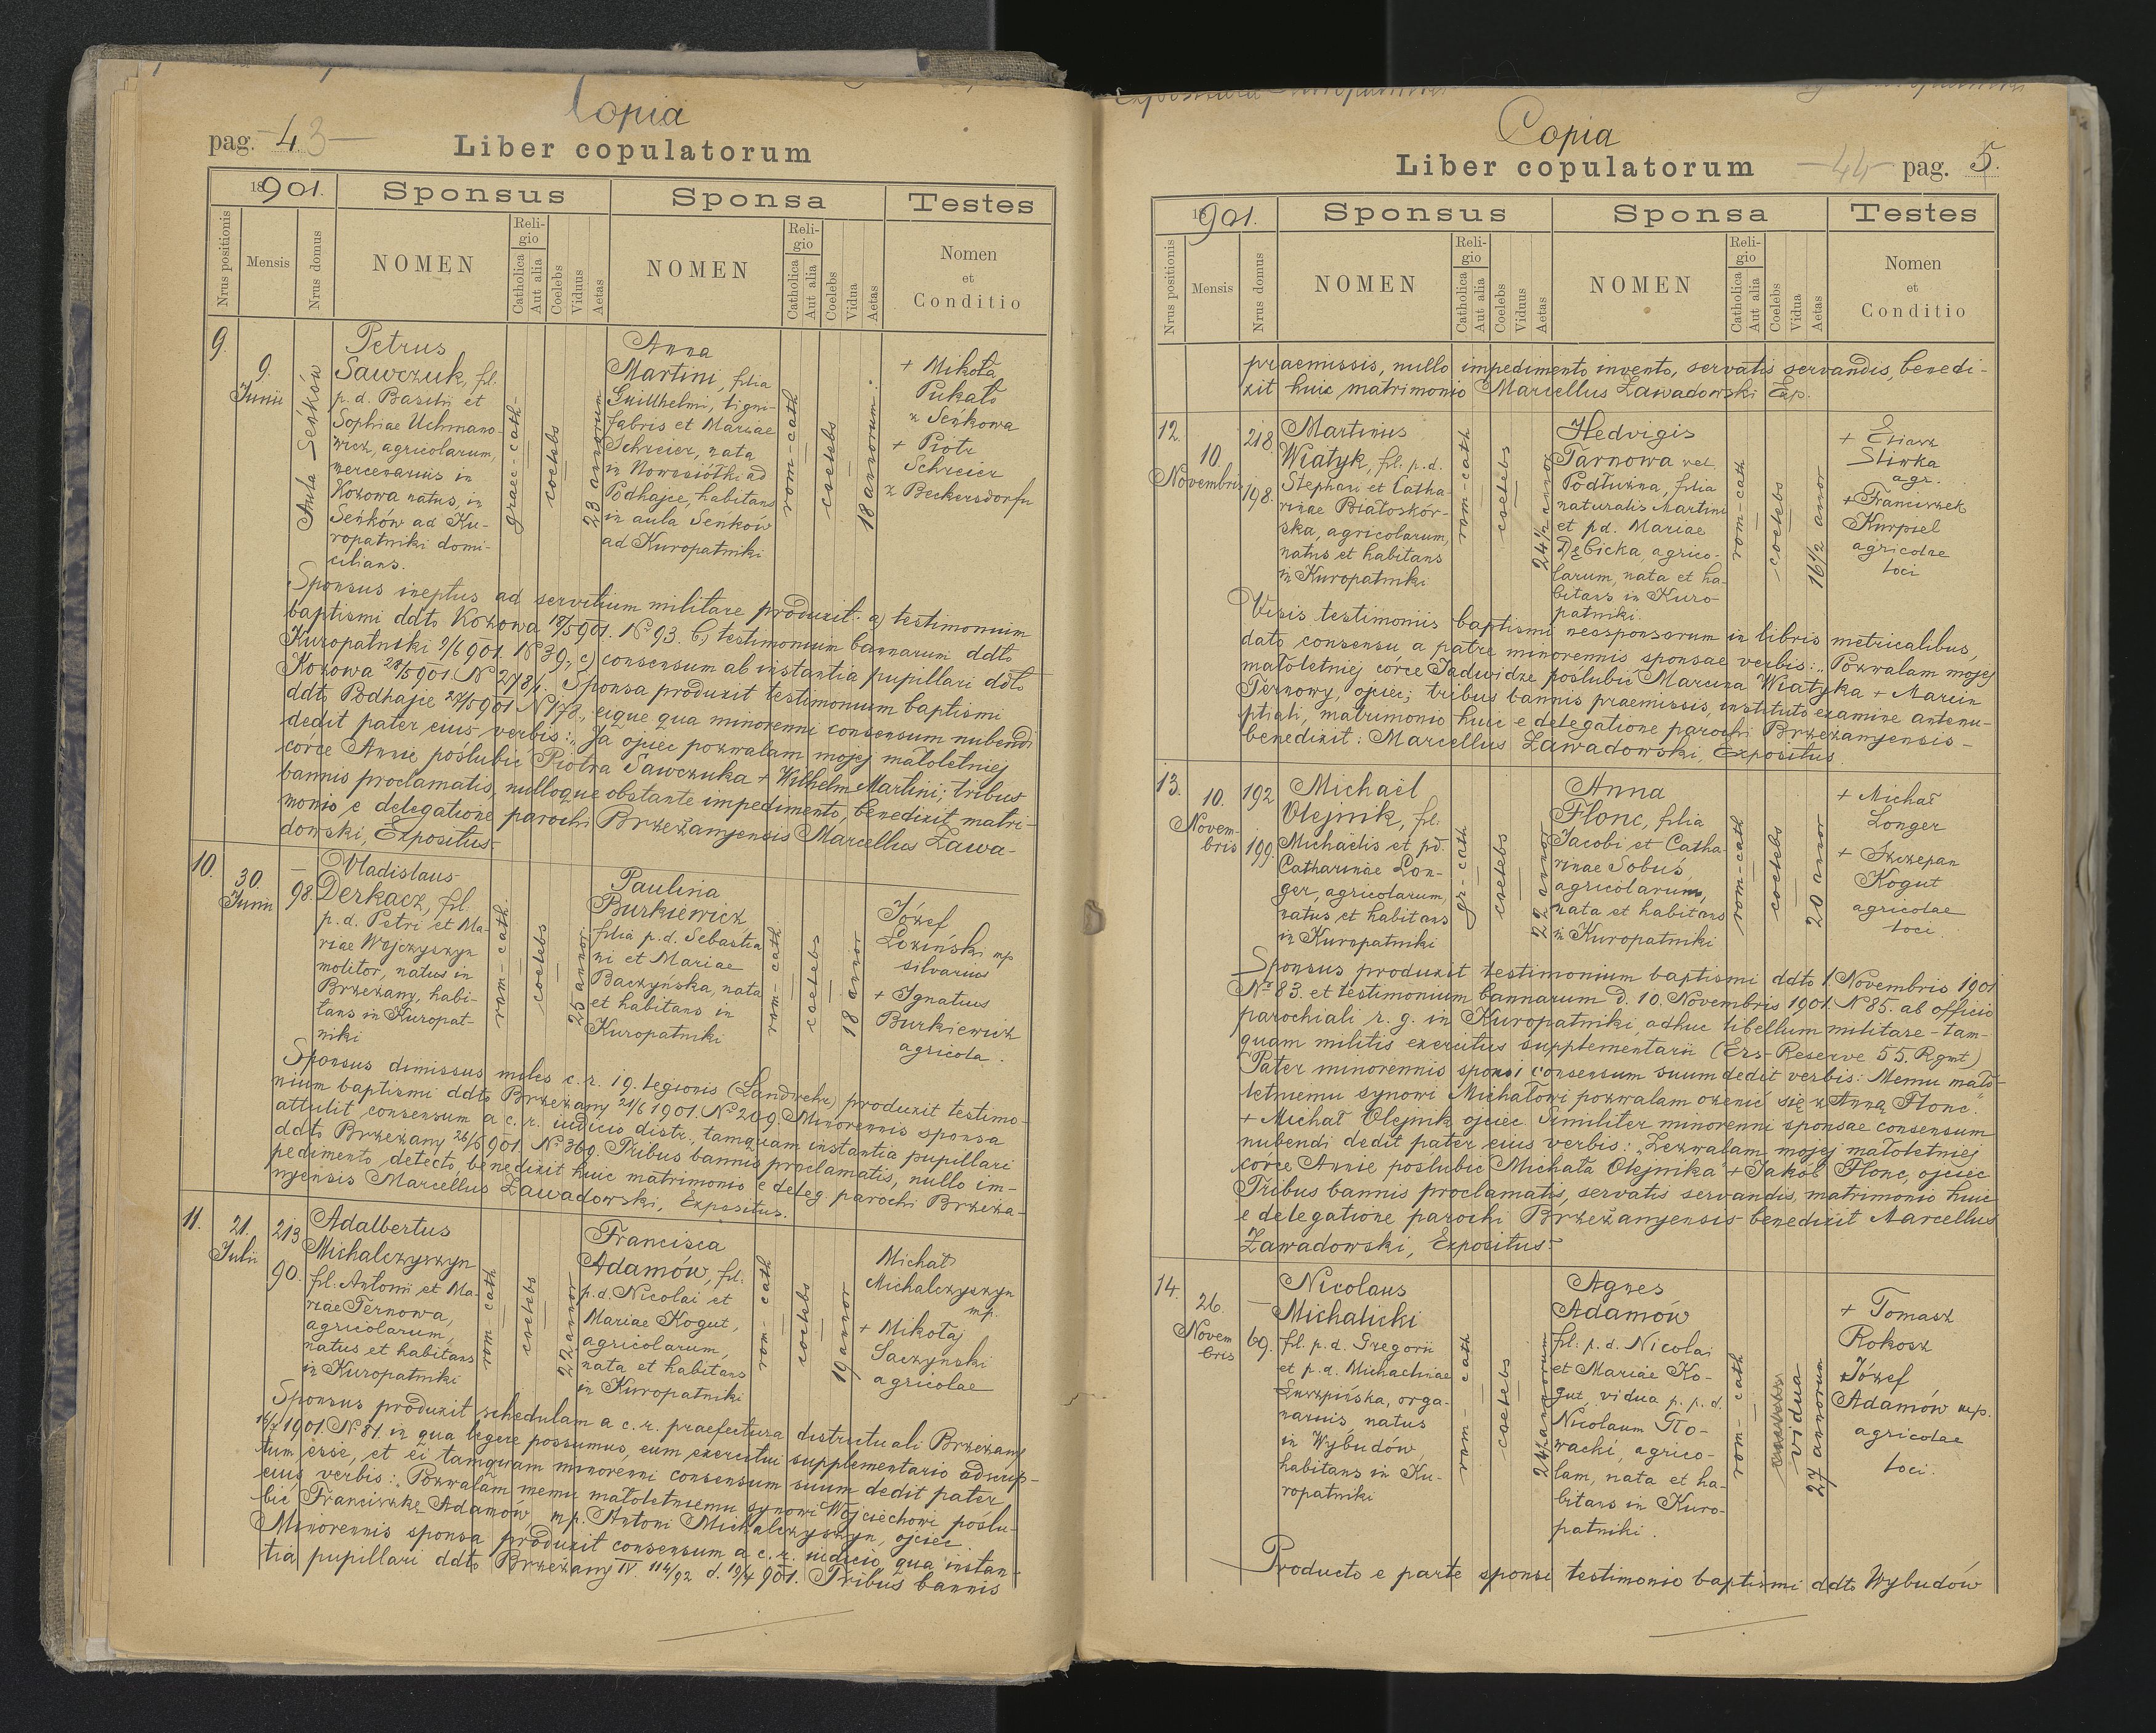 Copia
pag. 43
Liber copulatorum
1901.
Sponsus
Sponsa
Testes
Nrus positionis
Mensis
Nrus domus
NOMEN
Religio
Catholica
Aut alia
Coelebs
Viduus
Aetas
NOMEN
Religio
Catholica
Aut alia
Coelebs
Vidua
Aetas
Nomen
et
Conditio
9.
9.
Junii
Aula Seńków
Petrus
Sawczuk, fil.
p. d. Basilii et
Sophiae Uchmano-
wicz, agricolarum,
mercenarius in
Kozowa natus, in
Seńków ad Ku-
ropatniki domi-
cilians.
graec-cath-
coelebs
23 annorum
Anna
Martini, filia
Guillhelmi, ligni-
fabris et Mariae
Schreier, nata
in Nowosiółki ad
Podhajce, habitans
in aula Seńków
ad Kuropatniki
rom-cath
coelebs
18 annorum.
+ Mikoła
Pukało
z Seńkowa
+ Piotr
Schreier
z Beckersdorfu
Sponsus ineptus ad servitium militare produxit: a) testimonium
baptismi ddto Kozowa 18/5 901. No 93. b) testimonium bannorum ddto
Kuropatniki 9/6 901. No 39., c) consensum ab instantia pupillari ddto
Kozowa 28/5 901 No 278/1. Sponsa produxit testimonium baptismi
ddto Podhajce 27/5 901 No 173., eique qua minorenni consensum nubendi
dedit pater eius verbis: „Ja ojciec pozwalam mojej małoletniej
córce Annie poślubić Piotra Sawczuka + Wilhelm Martini; tribus
bannis proclamatis, nulloque obstante impedimento, benedixit matri-
monio e delegatione parochi Brzeżanyensis Marcellus Zawa-
dowski, Expositus.
10.
30.
Junii
98.
Vladislaus
Derkacz, fil.
p. d. Petri et Ma-
riae Wojczyszyn
molitor, natus in
Brzeżany, habi-
tans in Kuropat-
niki
rom-cath.
coelebs
25 annor.
Paulina
Burkiewicz
filia p. d. Sebastia
ni et Mariae
Baczyńska, nata
et habitans in
Kuropatniki
rom-cath
coelebs
18 annor
Józef
Łoziński mp
silvarius
+ Ignatius
Burkiewicz
agricola.
Sponsus dimissus miles c. r. 19. legionis (Landwehr) produxit testimo-
nium baptismi ddto Brzeżany 21/6 1901. No 209. Minorennis sponsa
attulit consensum a c. r. iudicio distr., tamquam instantia pupillari
ddto Brzeżany 26/6 901. No 369. Tribus bannis proclamatis, nullo im-
pedimento detecto, benedixit huic matrimonio e deleg. parochi Brzeża-
nyensis Marcellus Zawadowski, Expositus.
11.
21.
Julii
213
90.
Adalbertus
Michalczyszyn
fil. Antonii et Ma-
riae Ternowa,
agricolarum,
natus et habitans
in Kuropatniki
rom-cath
coelebs
22 annor
Francisca
Adamów, fil.
p. d. Nicolai et
Mariae Kogut,
agricolarum,
nata et habitans
in Kuropatniki
rom-cath
coelebs
19 annor
Michał
Michalczyszyn
mp.
+ Mikołaj
Saczynski
agricolae
Sponsus produxit schedulam a c. r. praefectura districtuali Brzeżany
1901. No 81. in qua legere possumus, eum exercitui supplementario adscrip-
tum esse, et ei tamquam minorenni consensum suum dedit pater
eius verbis: Pozwalam memu małoletniemu synowi Wojciechowi poślu-
bić Franciszkę Adamów mp. Antoni Michalczyszyn, ojciec.
Minorennis sponsa produxit consensum a c. r. iudicio qua instan-
tia pupillari ddto Brzeżany IV. 114/92 d. 19/4 901. Tribus bannis
Copia
Liber copulatorum
44 pag. 5.
1901.
Sponsus
Sponsa
Testes
Nrus positionis
Mensis
Nrus domus
NOMEN
Religio
Catholica
Aut alia
Coelebs
Viduus
Aetas
NOMEN
Religio
Catholica
Aut alia
Coelebs
Vidua
Aetas
Nomen
et
Conditio
praemissis, nullo impedimento invento, servatis servandis, benedi-
xit huic matrimonio Marcellus Zawadowski Exp.
12.
10.
Novembris
218
198.
Martinus
Wiatyk, fil. p. d.
Stephani et Catha-
rinae Białoskór-
ska, agricolarum,
natus et habitans
in Kuropatniki
rom-cath
coelebs
24½ annor
Hedvigis
Tarnowa vel
Podłuzna, filia
naturalis Martini
et pd. Mariae
Dębicka, agrico-
larum, nata et ha-
bitans in Kuro-
patniki.
rom-cath
coelebs
16½ annor
+ Eliasz
Śliwka
agr.
+ Franciszek
Kurpiel
agricolae
loci
Visis testimoniis baptismi neosponsorum in libris metricalibus,
dato consensu a patre minorennis sponsae verbis: „Pozwalam mojej
małoletniej córce Jadwidze poślubić Marcina Wiatyka + Marcin
Ternowy, ojciec; tribus bannis praemissis, instituto examine antenu-
ptiali, matrimonio huic e delegatione parochi Brzeżanyensis-
benedixit: Marcellus Zawadowski, Expositus.
13.
10.
Novem-
bris
192
199.
Michaël
Olejnik, fil.
Michaëlis et pd.
Catharinae Lon-
ger, agricolarum,
natus et habitans
in Kuropatniki
gr-cath
coelebs
22 annor
Anna
Flonc, filia
Jacobi et Catha-
rinae Sobuś,
agricolarum,
nata et habitans
in Kuropatniki
rom-cath
coelebs
20 annor
+ Michał
Longer
+ Szczepan
Kogut
agricolae
loci.
Sponsus produxit testimonium baptismi ddto 1. Novembris 1901
No 83. et testimonium bannorum d. 10. Novembris 1901. No 85. ab officio
parochiali r. g. in Kuropatniki, adhuc libellum militare-tam-
quam militis exercitus supplementarii (Ers-Reserve 55. Rgmt)
Pater minorennis sponsi consensum suum dedit verbis: Memu mało-
letniemu synowi Michałowi pozwalam ożenić się z Anną Flonc."
+ Michał Olejnik ojciec Similiter minorenni sponsae consensum
nubendi dedit pater eius verbis: „Zezwalam mojej małoletniej
córce Annie poślubić Michała Olejnika" + Jakób Flonc, ojciec
Tribus bannis proclamatis, servatis servandis, matrimonio huic
e delegatione parochi Brzeżanyensis benedixit Marcellus
Zawadowski, Expositus.
14.
26.
Novem
bris
69.
Nicolaus
Michalicki
fil. p. d. Gregorii
et p. d. Michaelinae
orga-
narius, natus
in Wybudów,
habitans in Ku-
ropatniki
rom-cath
coelebs
24 annorum
Agnes
Adamów
fil. p. d. Nicolai
et Mariae Ko-
gut, vidua p. p. d.
Nicolaum
agrico-
lam, nata et ha-
bitans in Kuro-
patniki.
rom-cath
vidua
27 annorum
+ Tomasz
Rokosz
Józef
Adamów mp.
agricolae
loci.
Producto e parte sponsi testimonio baptismi ddto Wybudów